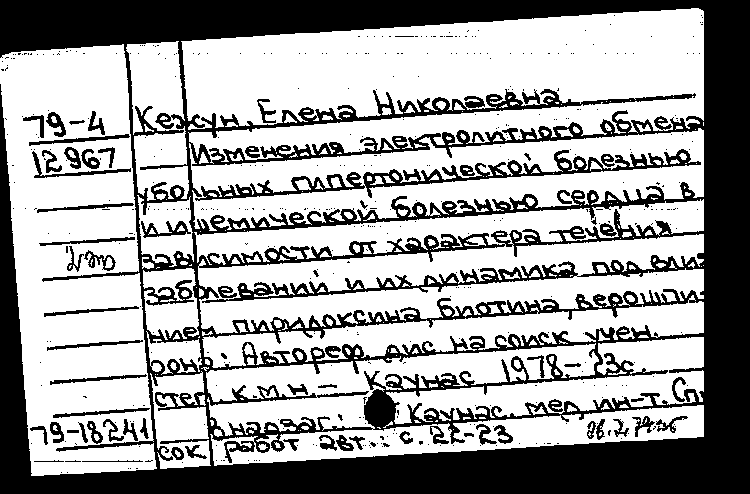 79-4 Кежун, Елена Николаевна.
12967 Изменения электролитного обмена
у больных гипертонической болезнью
и ишемической болезнью сердца в
зависимости от характера течения
заболеваний и их динамика под влия-
нием пиридоксина, биотина, верошпи-
рона: Автореф. дис на соиск учен.
степ. к.м.н. – Каунас, 1978. – 23с.
79-18241 В надзаг.: Каунас. мед. ин-т. Сп
сок работ авт.: с. 22-23